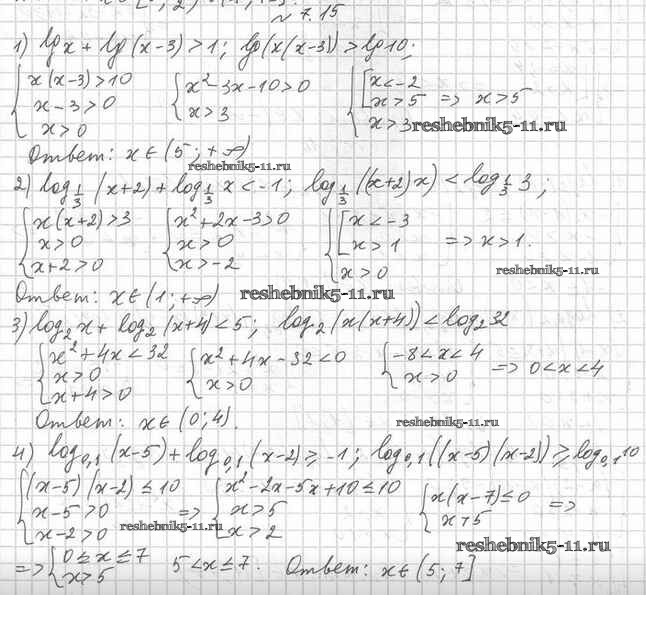 № 7.15
1) lg x + lg (x-3) > 1; lg(x(x-3)) > lg 10;
{ x(x-3)>10 { x²-3x-10>0 { [ x<-2
x-3>0 x>3 x>5 => x>5
x>0 x>3 reshebnik5-11.ru
Ответ: x∈(5; +∞)
reshebnik5-11.ru
2) log_{1/3} (x+2) + log_{1/3} x < -1; log_{1/3} ((x+2)x) < log_{1/3} 3;
{ x(x+2)>3 { x²+2x-3>0 { [ x<-3
x>0 x>0 x>1 => x>1.
x+2>0 x>-2 x>0 reshebnik5-11.ru
Ответ: x∈(1; +∞) reshebnik5-11.ru
3) log₂ x + log₂ (x+4) < 5; log₂ (x(x+4)) < log₂ 32
{ x²+4x<32 { x²+4x-32<0 { -8<x<4
x>0 x>0 x>0 => 0<x<4
x+4>0
Ответ: x∈(0; 4). reshebnik5-11.ru
4) log_{0,1} (x-5) + log_{0,1} (x-2) ≥ -1; log_{0,1} ((x-5)(x-2)) ≥ log_{0,1} 10
{ (x-5)(x-2) ≤ 10 { x²-2x-5x+10 ≤ 10 { x(x-7) ≤ 0
x-5>0 => x>5 x>5 =>
x-2>0 x>2
reshebnik5-11.ru
reshebnik5-11.ru
=> { 0≤x≤7 5<x≤7. Ответ: x∈(5; 7]
x>5